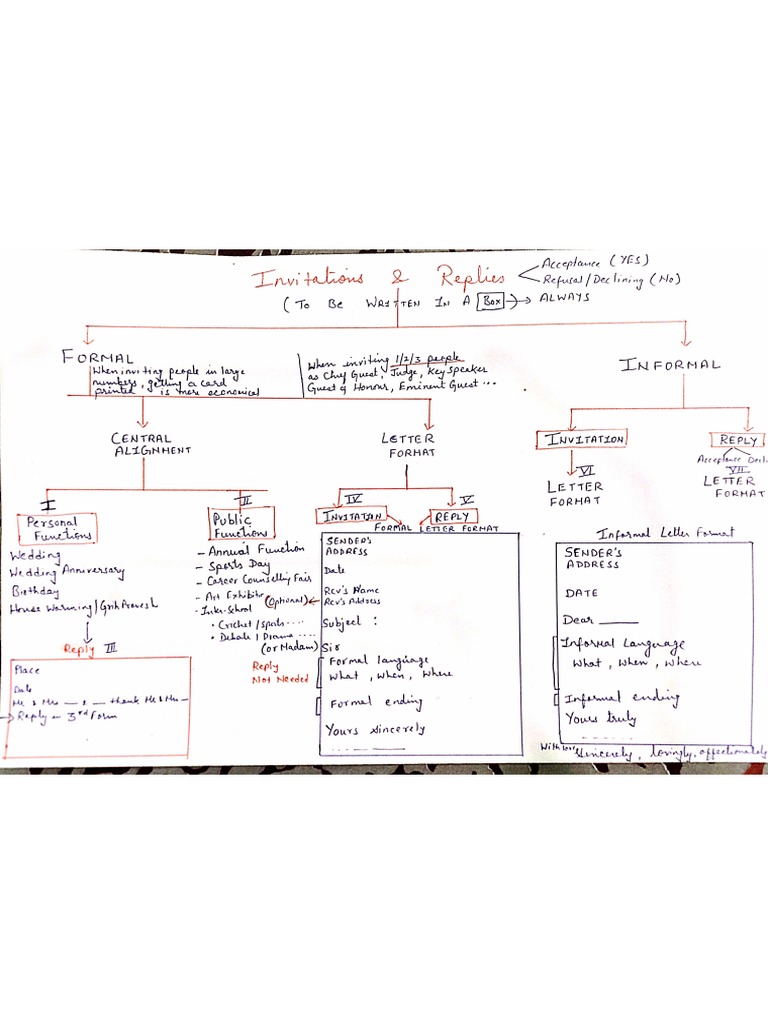 Invitations & Replies
Acceptance (YES)
Refusal/Declining (No)
(To Be Written In A Box → ALWAYS
FORMAL
When inviting people in large
numbers, getting a card
printed is more economical
When inviting 1/2/3 people
as Chief Guest, Judge, Key Speaker
Guest of Honour, Eminent Guest ...
INFORMAL
CENTRAL
ALIGNMENT
LETTER
FORMAT
INVITATION
REPLY
Acceptance Decl
VI
LETTER
FORMAT
VII
LETTER
FORMAT
I
Personal
Functions
Wedding
Wedding Anniversary
Birthday
House Warming/Grih Pravesh
Reply III
Place
Date
Mr & Mrs __ & __ thank Mr & Mrs –
→ Reply in 3rd Form
II
Public
Functions
- Annual Function
- Sports Day
- Career Counselling Fair
- Art Exhibitn
- Inter-School
• Cricket/Sports ....
• Debate/Drama ....
Reply
Not Needed
IV
INVITATION
V
REPLY
FORMAL LETTER FORMAT
SENDER'S
ADDRESS
Date
(Optional) ← Rcv's Name
Rcv's Address
Subject :
(or Madam) Sir
Formal language
What, When, Where
Formal ending
Yours sincerely
Informal Letter Format
SENDER'S
ADDRESS
DATE
Dear ______
Informal Language
What, When, Where
Informal ending
Yours truly
With love, Sincerely, lovingly, affectionately